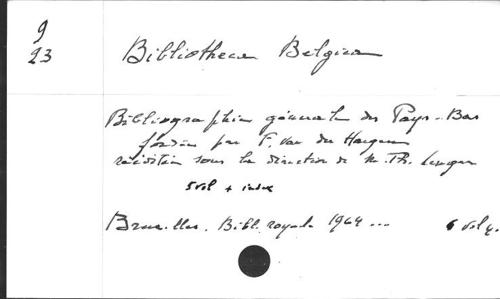 9
23
Bibliotheca Belgica
Bibliographie générale des Pays-Bas
fondée par F. van der Haegen
rééditée sous la direction de M. Th. Lenger
5 vol + index
Bruxelles. Bibl. royale 1964 ... 6 vol 4.